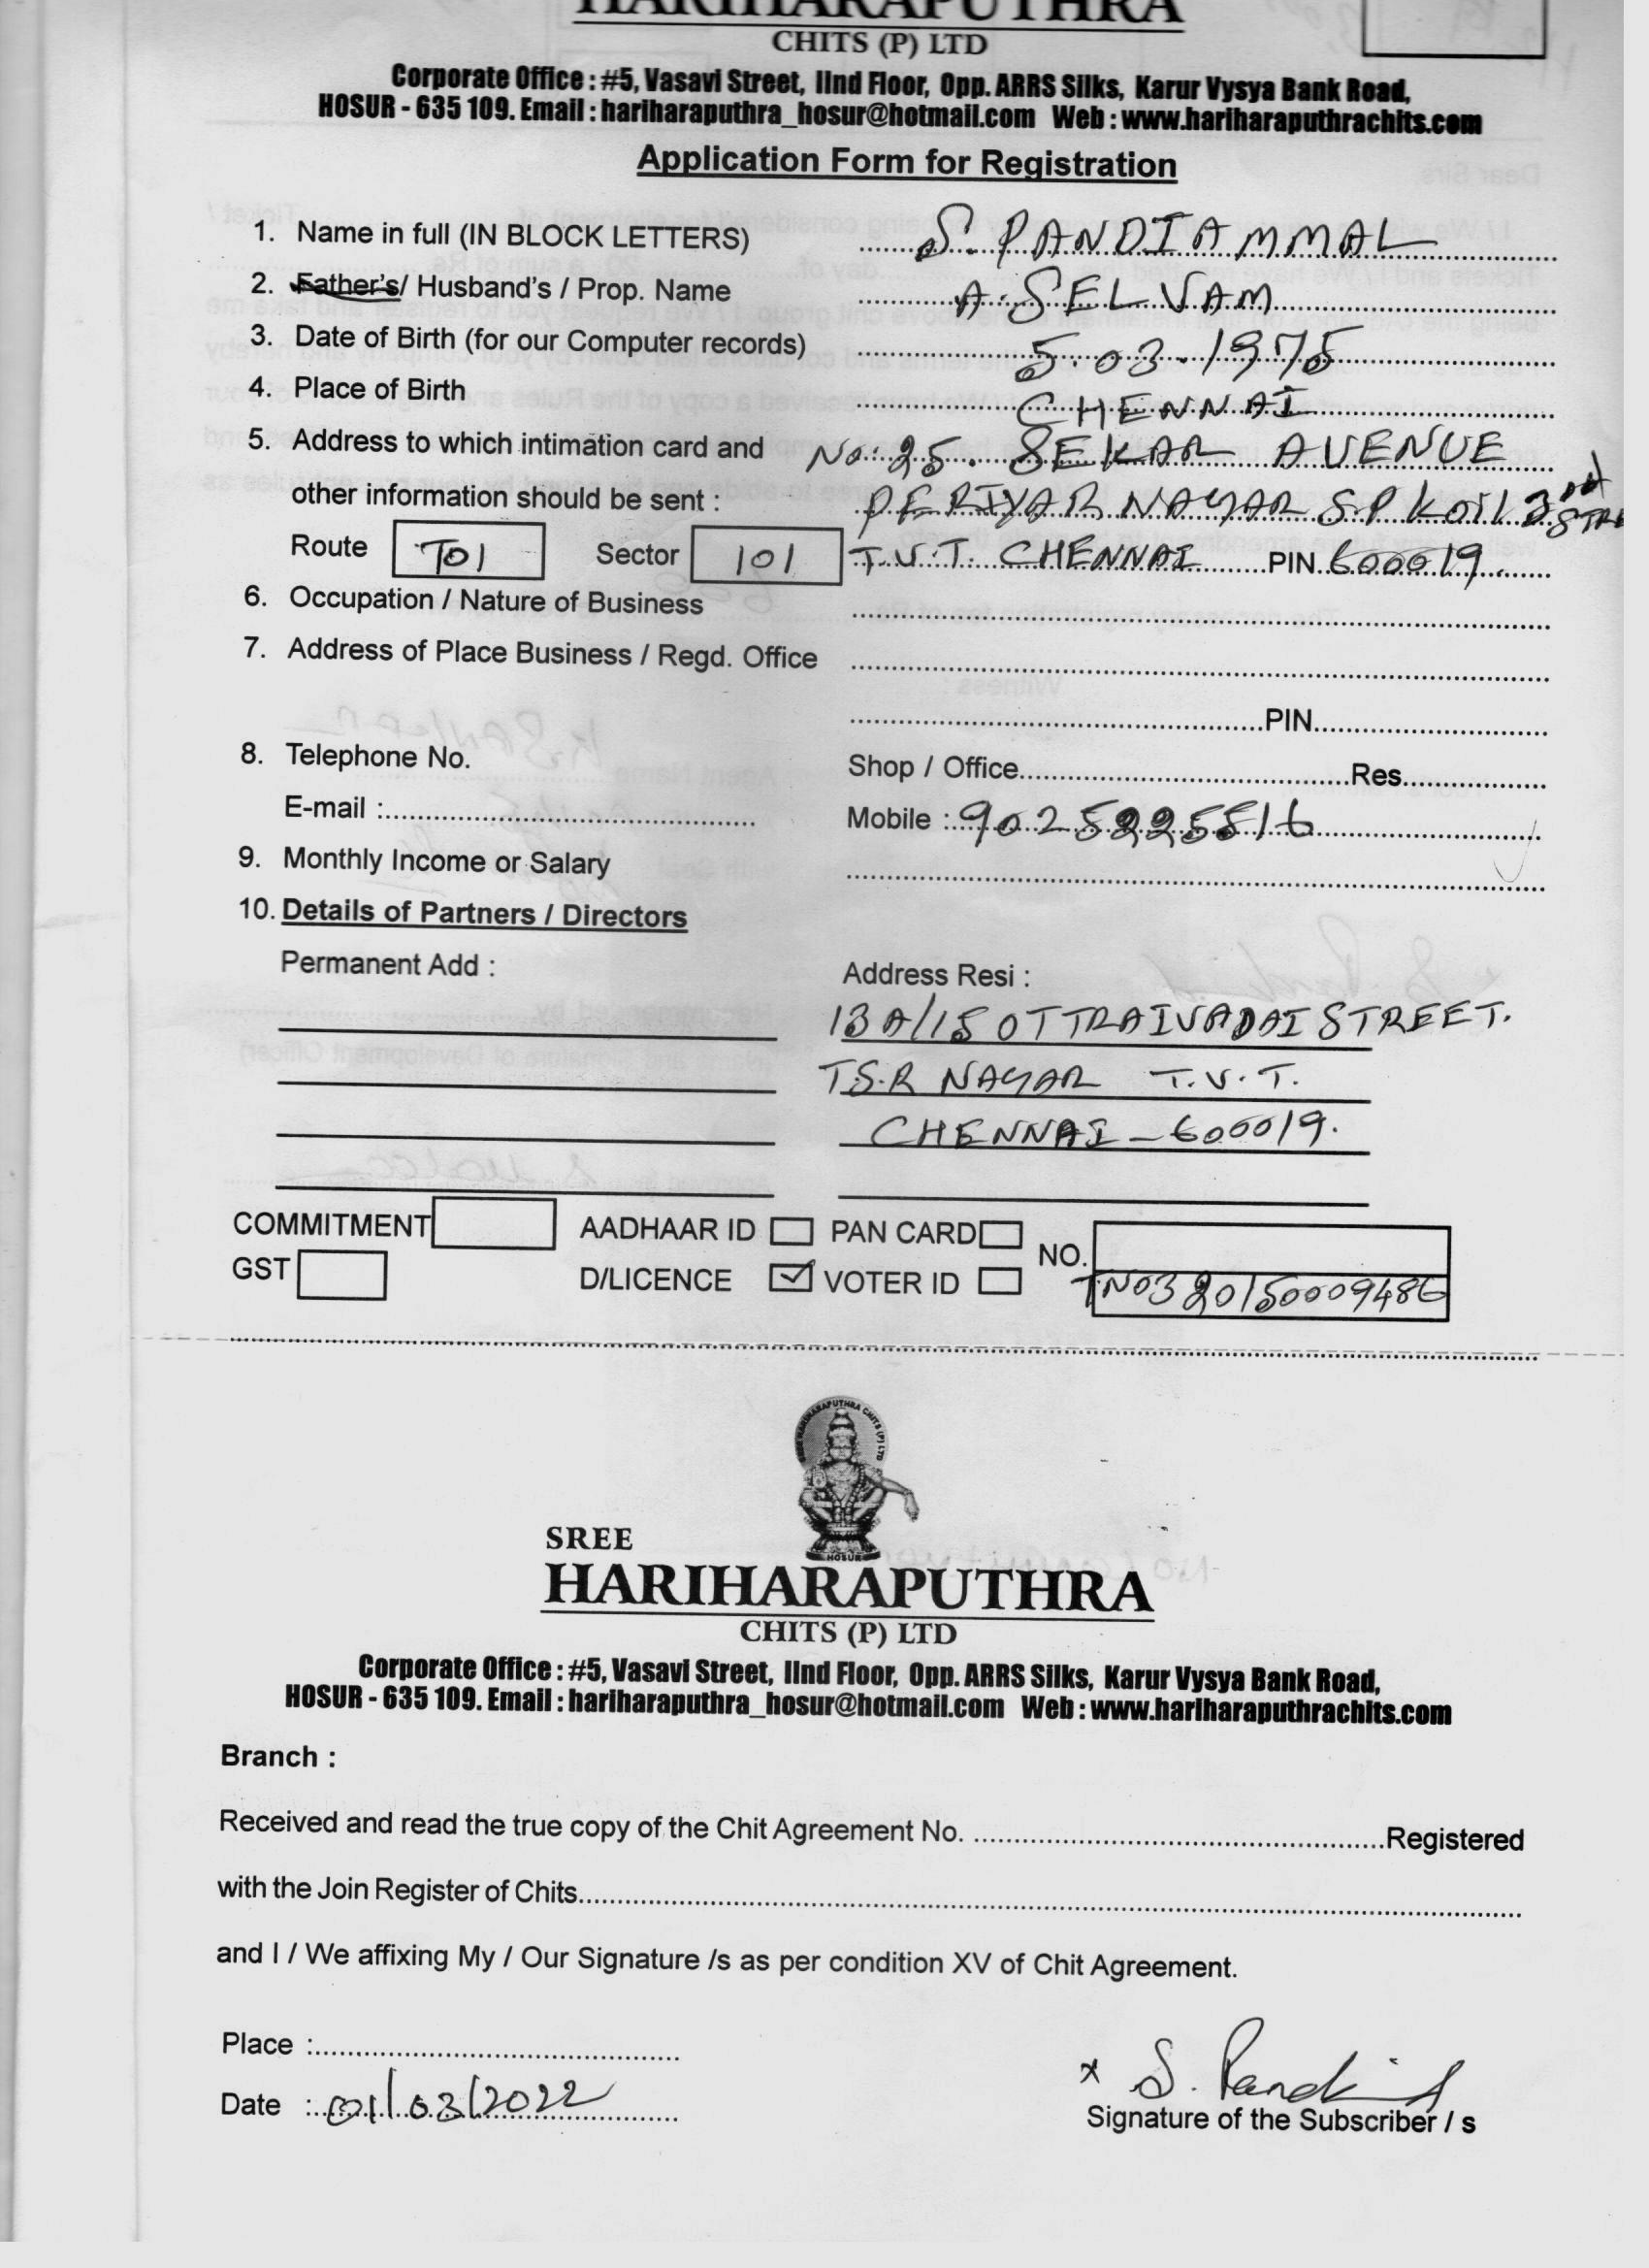 HARIHARAPUTHRA
CHITS (P) LTD
Corporate Office : #5, Vasavi Street, IInd Floor, Opp. ARRS Silks, Karur Vysya Bank Road,
HOSUR - 635 109. Email : hariharaputhra_hosur@hotmail.com Web : www.hariharaputhrachits.com
Application Form for Registration
1. Name in full (IN BLOCK LETTERS) S. PANDIAMMAL
2. Father's / Husband's / Prop. Name A. SELVAM
3. Date of Birth (for our Computer records) 5.03.1975
4. Place of Birth CHENNAI
5. Address to which intimation card and No: 25. SEKAR AVENUE
other information should be sent : PERIYAR NAGAR S.P KOIL 3rd STRE
Route T01 Sector 101 T.V.T. CHENNAI PIN 600019.
6. Occupation / Nature of Business
7. Address of Place Business / Regd. Office
PIN
8. Telephone No. Shop / Office Res.
E-mail : Mobile : 9025225516
9. Monthly Income or Salary
10. Details of Partners / Directors
Permanent Add : Address Resi :
13A/15 OTTRAIVADAI STREET.
T.S.R NAGAR T.V.T.
CHENNAI - 600019.
COMMITMENT AADHAAR ID PAN CARD NO.
GST D/LICENCE VOTER ID TN03 20150009486
HOSUR
SREE
HARIHARAPUTHRA
CHITS (P) LTD
Corporate Office : #5, Vasavi Street, IInd Floor, Opp. ARRS Silks, Karur Vysya Bank Road,
HOSUR - 635 109. Email : hariharaputhra_hosur@hotmail.com Web : www.hariharaputhrachits.com
Branch :
Received and read the true copy of the Chit Agreement No. Registered
with the Join Register of Chits
and I / We affixing My / Our Signature /s as per condition XV of Chit Agreement.
Place :
Date : 01/03/2022
x S. Pandi
Signature of the Subscriber / s